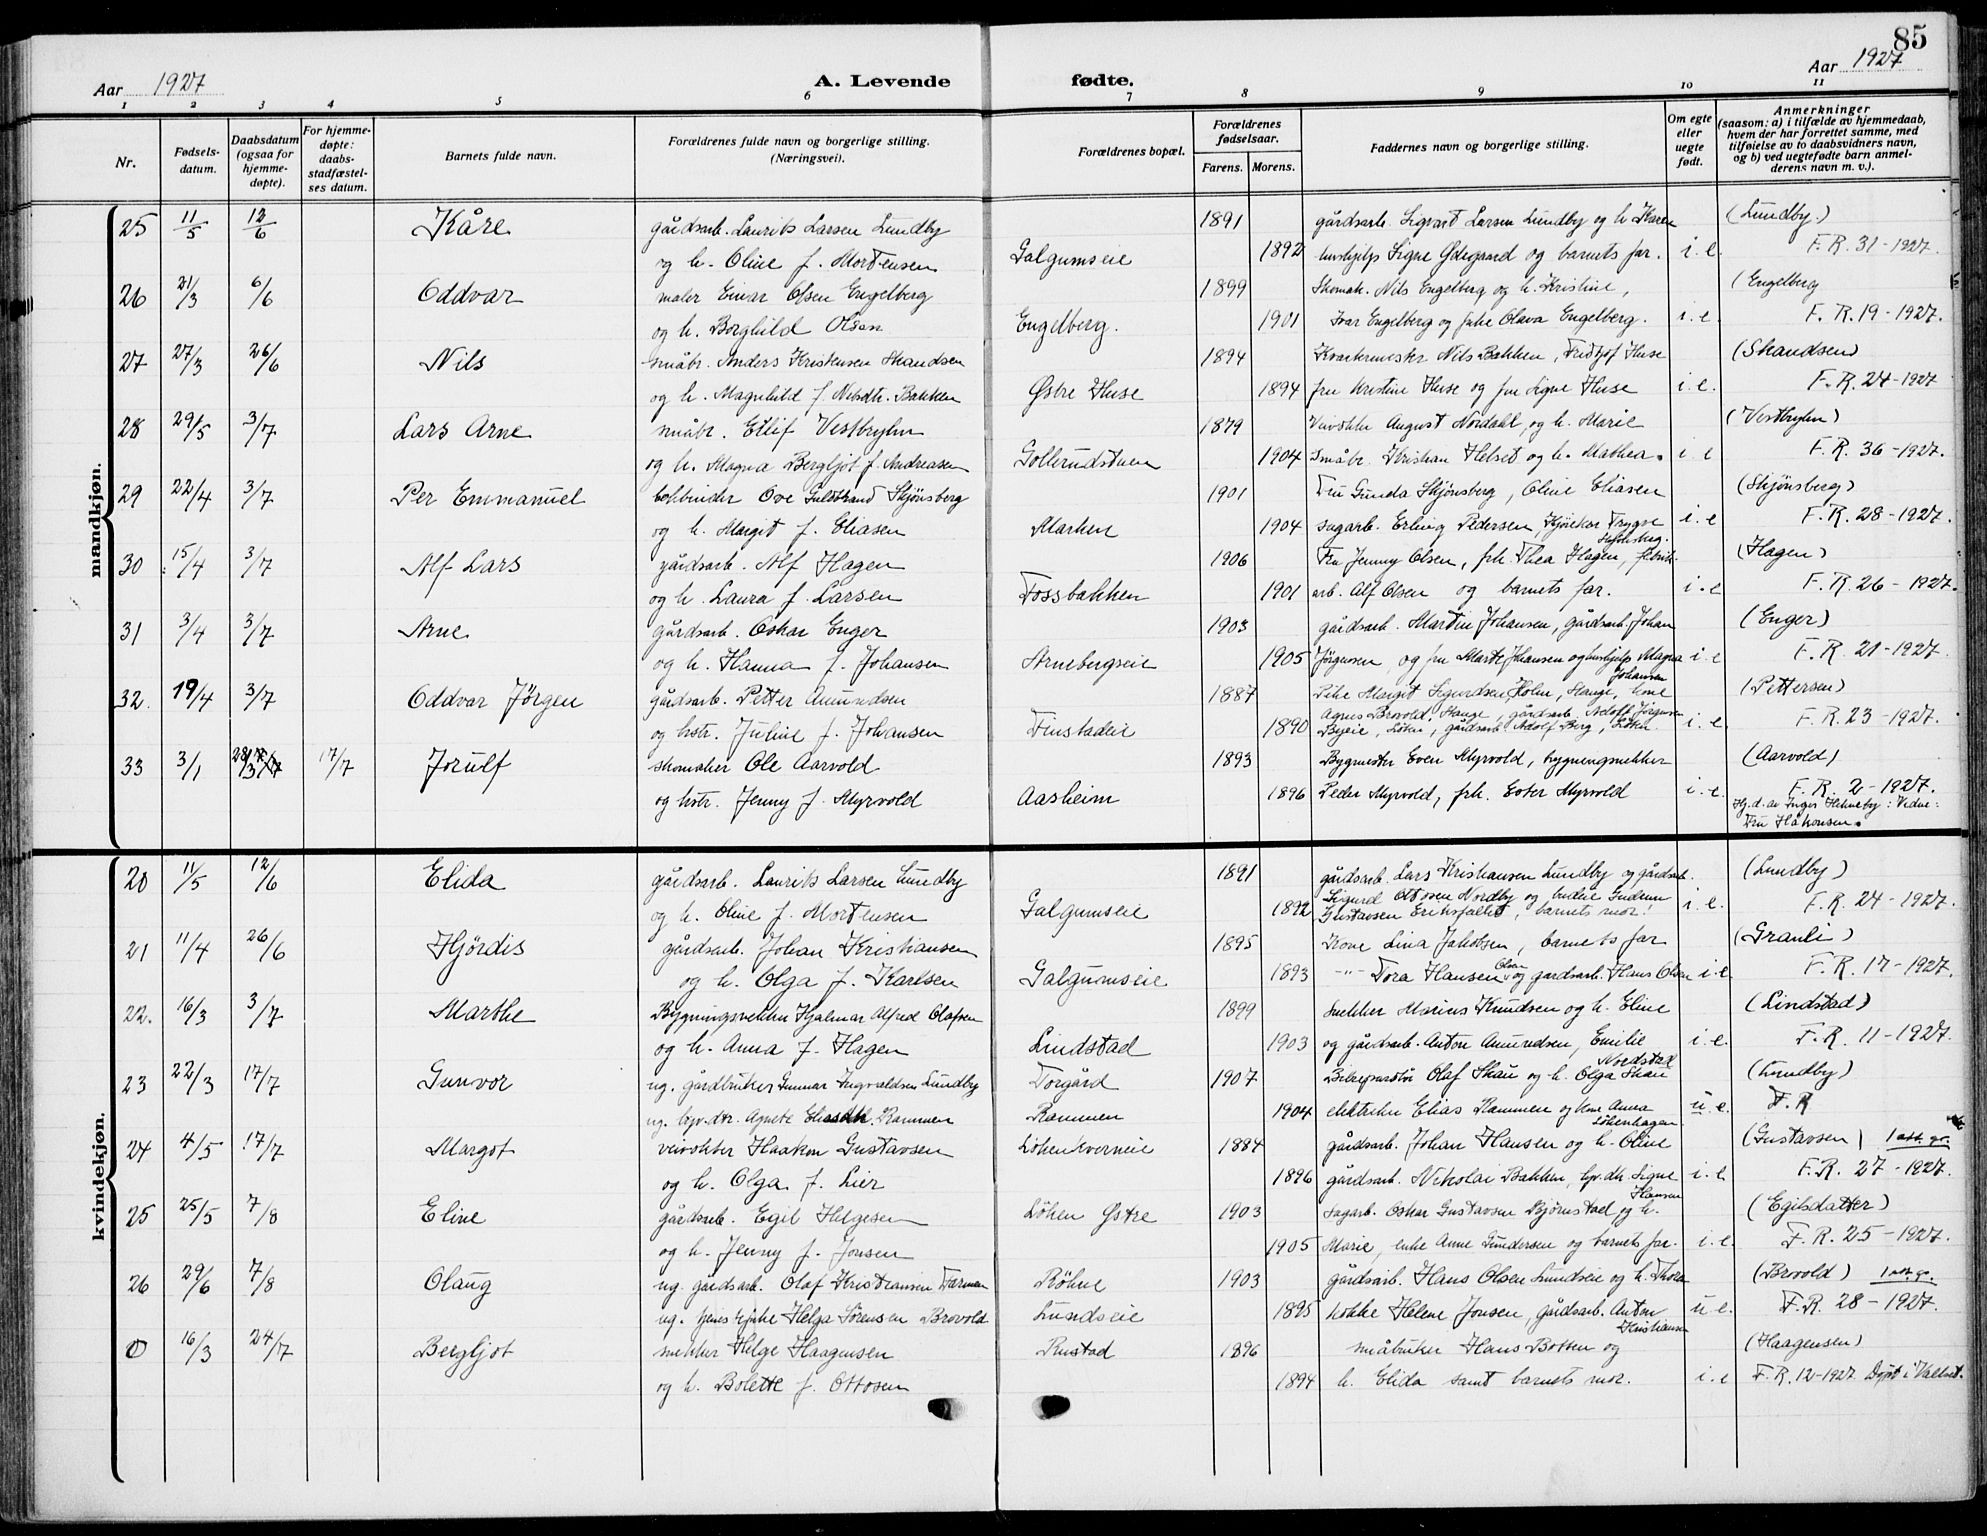 85
Aar 1927
A. Levende
fødte.
Aar 1927
1 2 3 4 5 6 7 8 9 10 11
Nr.
Fødsels-
datum.
Daabsdatum
(ogsaa for
hjemme-
døpte).
For hjemme-
døpte:
daabs-
stadfæstel-
ses datum.
Barnets fulde navn.
Forældrenes fulde navn og borgerlige stilling.
(Næringsvei).
Forældrenes bopæl.
Forældrenes
fødselsaar.
Farens. Morens.
Faddernes navn og borgerlige stilling.
Om egte
eller
uegte
født.
Anmerkninger
(saasom: a) i tilfælde av hjemmedaab,
hvem der har forrettet samme, med
tilføielse av to daabsvidners navn,
og b) ved uegtefødte barn anmel-
derens navn m. v.).
mandkjøn.
25 11/5 12/6 Kåre gårdsarb. Laurits Larsen Lundby 1891 gårdsarb. Sigvart Larsen Lundby og h. Karen (Lundby.)
og h. Oline f. Mortensen Galgumseie 1892 hushjelp Signe Ødegaard og barnets far. i. e F. R. 31-1927.
26 21/3 6/6 Oddvar maler Einar Olsen Engelberg 1899 Skomak. Nils Engelberg og h. Kristine, (Engelberg
og h. Borghild Olsen Engelberg. 1901 Ivar Engelberg og Olava Engelberg. i. e. F. R. 19-1927.
27 27/3 26/6 Nils småbr. Anders Kristensen Skandsen 1894 Kvartermester Nils Bakken, Fridtjof Huse (Skandsen)
og h. Magnhild f. Bakken Østre Huse 1894 fru Kristine Huse og fru Signe Huse i. e. F. R. 24-1927
28 29/5 3/7 Lars Arne småbr. Eilif Vestbryhn 1879 Veivokter August Nordahl, og h. Marie (Vestbryhn)
og h. Magna Bergljot f. Andreasen Gollerudstuen 1904 småbr. Kristian Helset og h. Mathea. i e F. R. 36-1927.
29 22/4 3/7 Per Emmanuel bokbinder Ove Guldstrand Skjønsberg 1901 Fru Gunda Skjønsberg, Oline Eliasen (Skjønsberg)
og h. Margit f. Eliasen Marken 1904 sagarb. Erling Pedersen, Trygve i. e F. R. 28-1927.
30 15/4 3/7 Alf Lars gårdsarb. Alf Hagen 1906 Fru Jenny Olsen, frk. Thea Hagen, fabrik- (Hagen)
og h. Laura f. Larsen Fossbakken 1901 arb. Alf Olsen og barnets far. i. e F. R. 26-1927.
31 3/4 3/7 Arne gårdsarb. Oskar Enger 1903 gårdsarb. Martin Johansen, gårdsarb. Johan (Enger)
og h. Hanna f. Johansen Arnebergseie 1905 Jørgensen og fru Marte Johansen og hushjelp Magna i. e F. R. 21-1927.
Johansen
32. 19/4 3/7 Oddvar Jørgen gårdsarb. Petter Amundsen 1887 Pike Margit Sigurdsen Holm, Stange, kone (Pettersen)
Agnes Brovold, Stange, gårdsarb. Adolf Jørgensen
og hstr. Juline f. Johansen Finstadeie 1890 Byeie, Løten, gårdsarb. Adolf Berg, Løten. i. e. F. R. 23-1927.
33 3/1 17/7 17/7 Jorulf skomaker Ole Aarvold 1893 Bygmester Even Myrvold, bygningsnekker (Aarvold)
og hstr. Jenny f. Myrvold Aasheim 1896 Peder Myrvold, frk. Ester Myrvold i. e. F. R. 2-1927.
Hj. d. av Inger : Vidne:
Fru Håkonsen.
kvindekjøn.
20 11/5 12/6 Elida gårdsarb. Laurits Larsen Lundby 1891 gårdsarb. Lars Kristiansen Lundby og gårdsarb. (Lundby)
Sigurd Ottosen Nordby og budeie Gudrun
og h. Oline f. Mortensen Galgumseie 1892 Gustavsen Eriksfallet, barnets mor! i. e. F. R. 24-1927.
21 11/4 26/6 Hjördis gårdsarb. Johan Kristiansen 1895 Kone Lina Jakobsen, barnets far (Granli)
Olsen
og h. Olga f. Karlsen Galgumseie 1893 -"- Tora Hansen og gardsarb. Hans Olsen i e. F. R. 17-1927.
22. 16/3 3/7 Marthe Bygningsnekker Hjalmar Alfred Olafsen 1899 snekker Marius Knudsen og h. Eline (Lindstad)
og h. Anna f. Hagen Lindstad 1903 og gårdsarb. Anton Amundsen, Emilie i. e. F. R. 11-1927.
Nordstad
23 22/3 17/7 Gunvor ug. gårdbruker Gunnar Ingvaldsen Lundby Torgård 1907 Olaf Skau og h. Olga Skau (Lundby)
ug. hpv.dtr. Agnete Rammen Rammen 1904 elektriker Elias Rammen og kone Anna u. e. F. R
Løkenhagen
24 4/5 17/7 Margot veivokter Haakon Gustavsen Løken Kverneie 1884 gårdsarb. Johan Hansen og h. Oline (Gustavsen) 1 att. gr.
og h. Olga f. Lier 1896 gårdsarb. Nikolai Bakken, hpv. dtr. Signe i. e F. R. 27-1927.
Hansen
25 25/5 7/8 Eline gårdsarb. Egil Helgesen Løken Østre 1903 sagarb. Oskar Gustavsen Bjørnstad og h. (Egilsdatter)
og h. Jenny f. Jonsen 1905 Marie, enke Anne Gundersen og barnets far. i. e. F. R. 25-1927.
26 29/6 7/8 Olaug ug. gårdsarb. Olaf Kristiansen Farmen Röhne 1903 gårdsarb. Hans Olsen Lundseie og h. Thora (Brovold) 1 att. gr.
ug. tjenestepike Helga Sörensen Brovold Lundseie 1895 kokke Helene Jonsen, gårdsarb. Anton u e. F. R. 28-1927.
Kristiansen
0 16/3 24/7 Bergljot snekker Helge Haagensen Rustad 1896 småbruker Hans Botten og (Haagensen)
og h. Bolette f. Ottosen 1894 h. Elida samt barnets mor. i. e F. R. 12-1927 Døpt i Vallset.